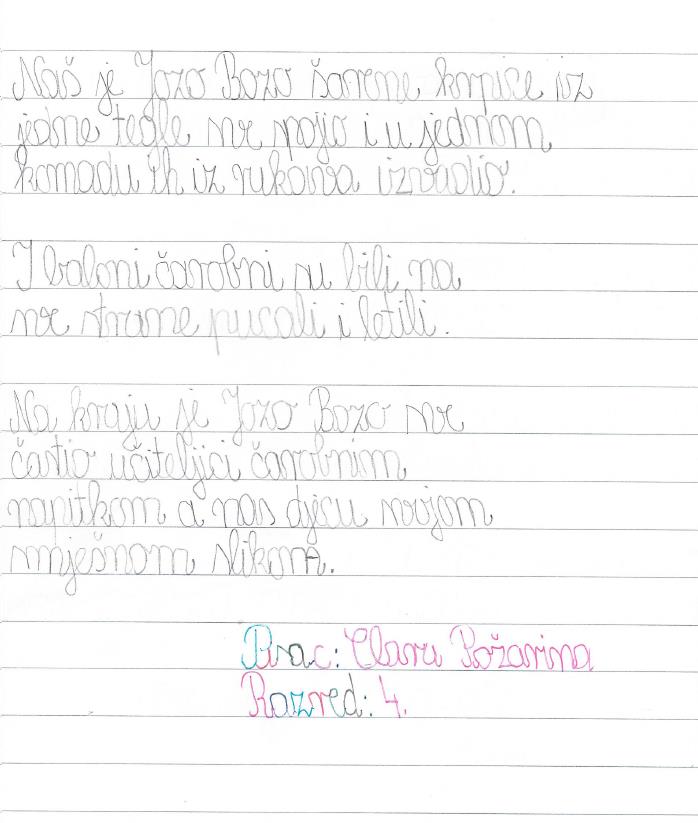 Naš je Jozo Bozo šarene krpice iz
jedne tegle sve spojio i u jednom
komadu ih iz rukava izvadio.
I baloni čarobni su bili na
sve strane pucali i letili.
Na kraju je Jozo Bozo sve
častio učiteljici čarobnim
napitkom a nas djecu svojom
smješnom slikom.
Pisac: Clara Požarina
Razred: 4.